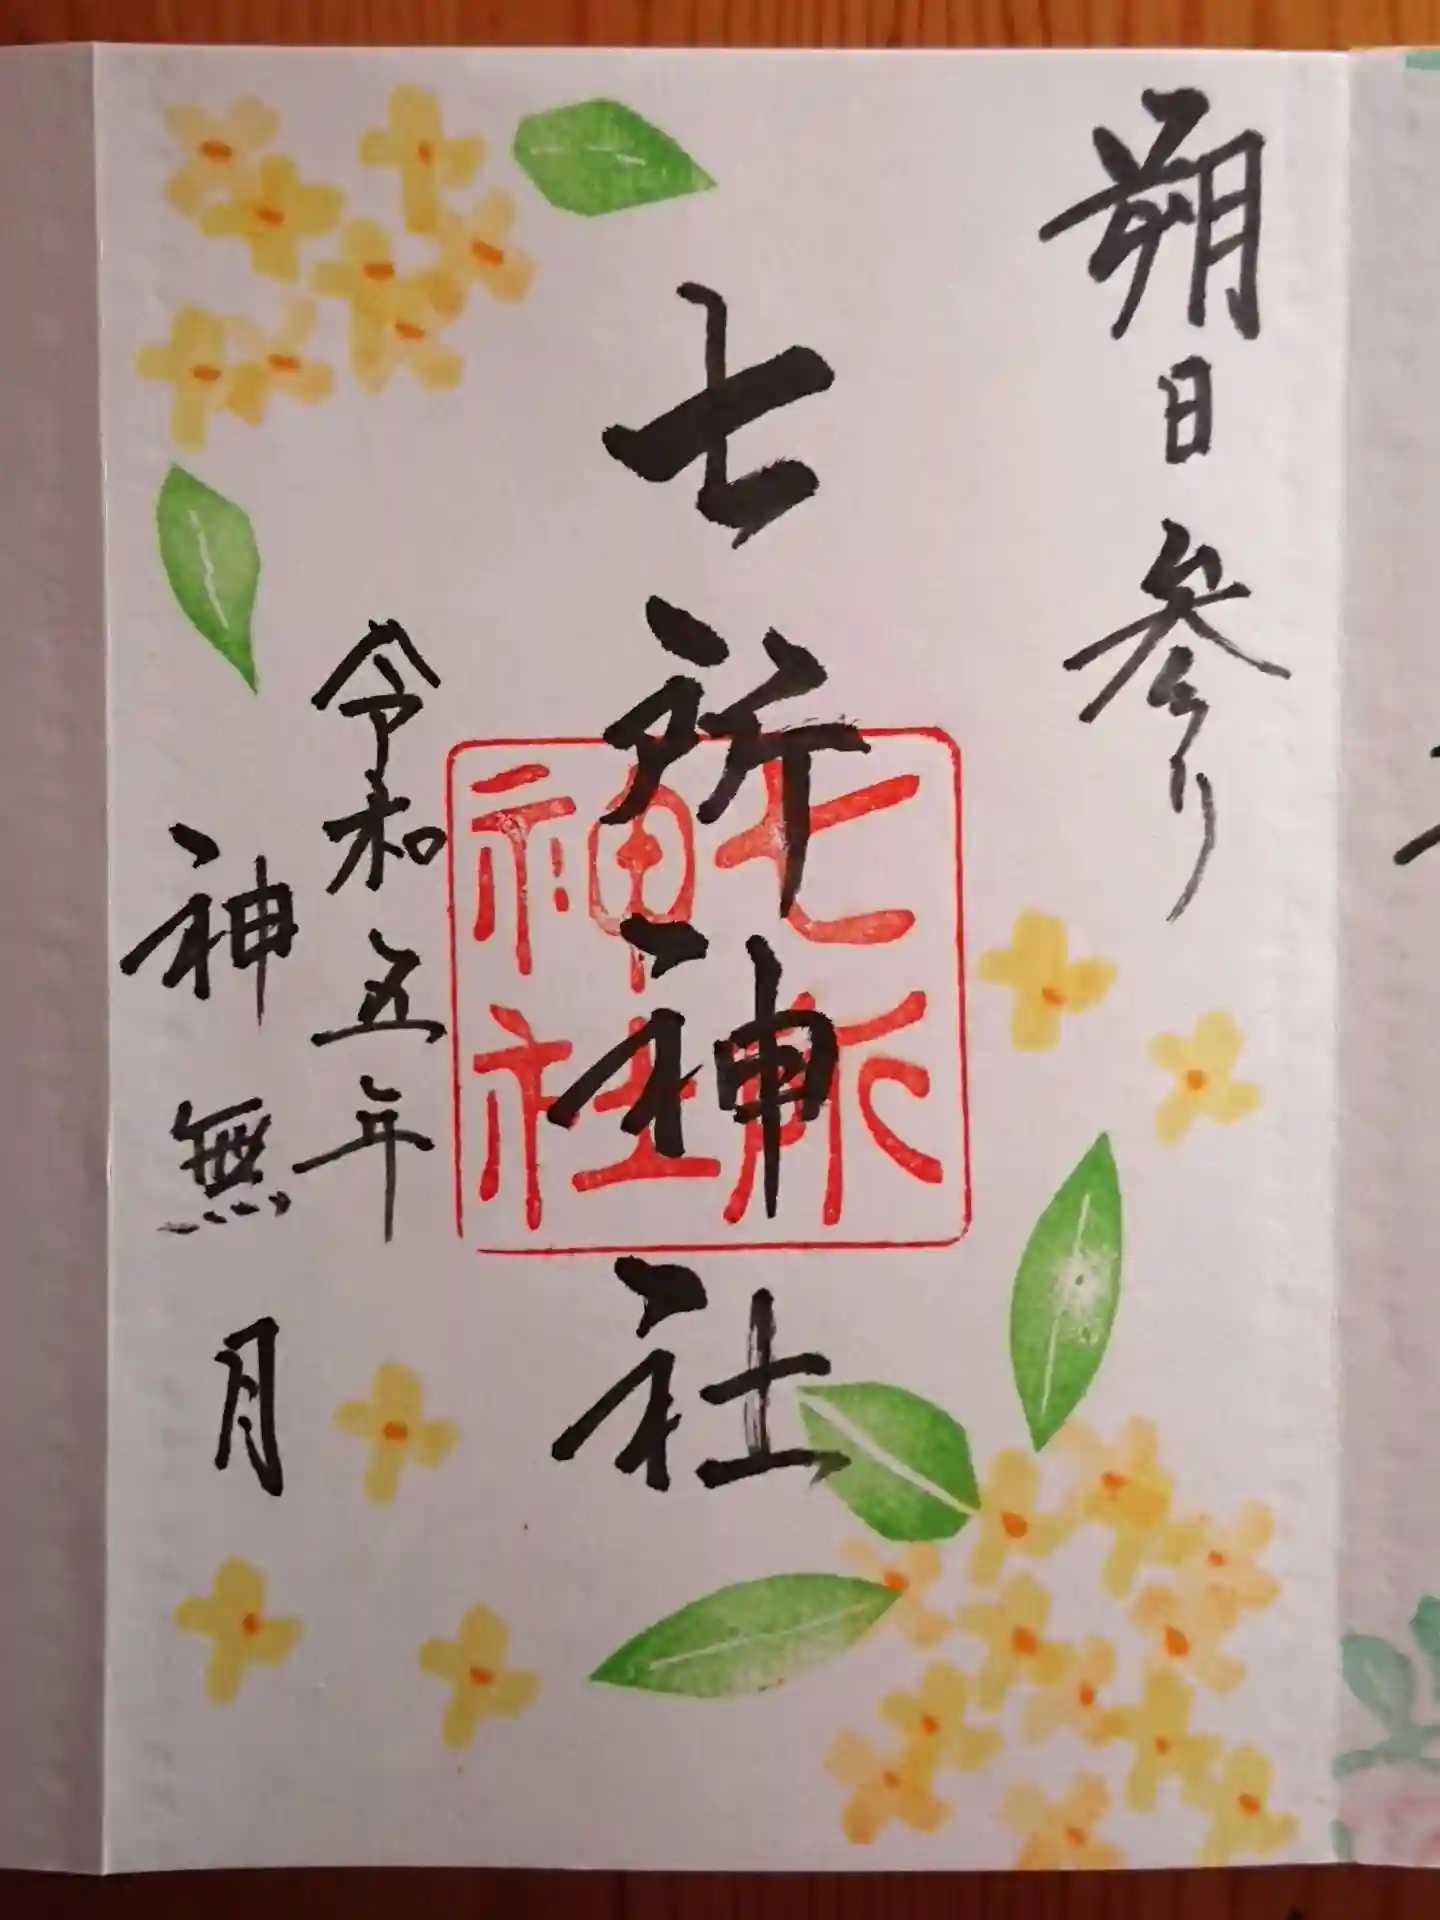 朔日参り
七所神社
七所神社
令和五年
神無月